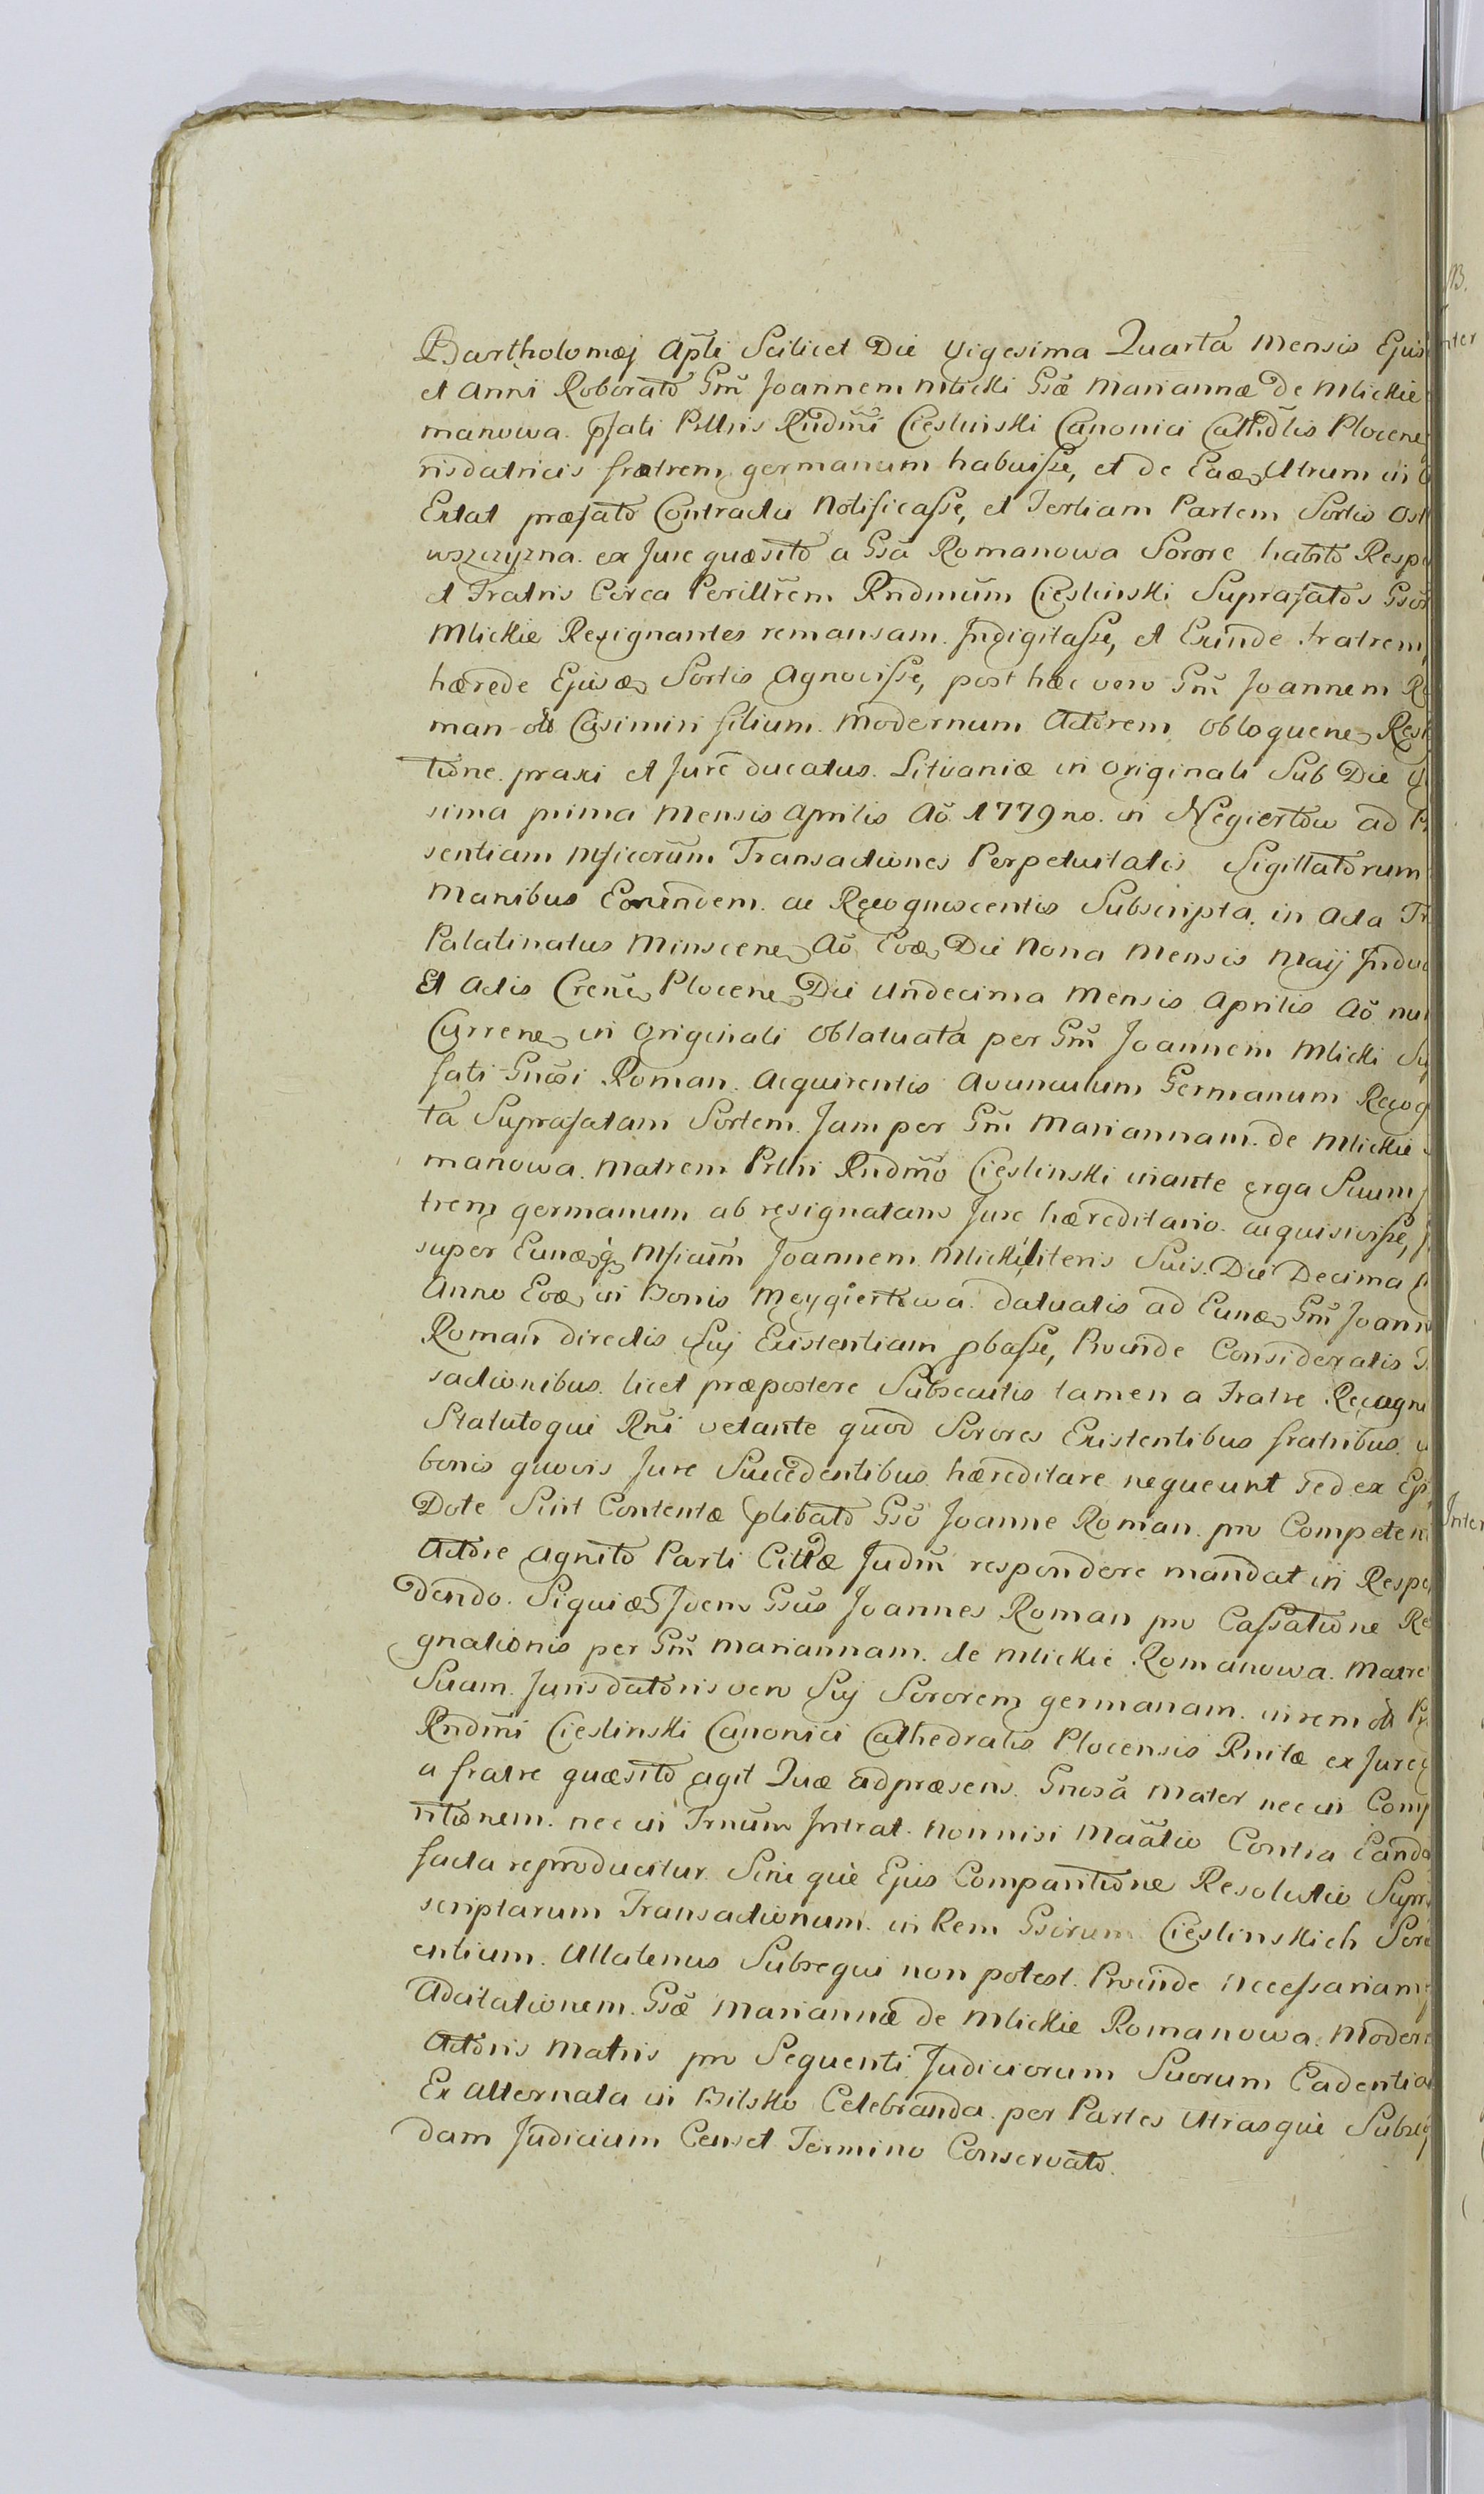 Bartholomæj Apli Scilicet Die Vigesima Quarta Mensis Ejus
et Anni Roborato Gm̃ Joannem Mlicki Gsæ Mariannæ De Mlickie
manowa. Pfati Pllris Rñdm̃i Cieslinski Canonici Cathdlis Plocene
risdatricis fratrem germanum habuisse, et de Eaæ Utrum in
Extat præfato Contractu Notificasse, et Tertiam Partem Sortis Ost
wszczyzna. ex Jure quæsito a Gsã Romanowa Sorore habito Resp
et Fratris Circa Perillrẽm Rndmũm Cieslinski Suprafatos Gsor
Mlickie Resignantes remansam. Indigitasse, et Exinde fratrem
hærede Ejusæ Sortis Agnovisse, post hæc vero Gm̃ Joannem Ro
man olo Casimiri filium. Modernum Actorem obloquene Res
tione. praxi et Jure ducatus. Lituaniæ in originali Sub Die
sima prima Mensis Aprilis Aõ 1779no. in Negiertow ad
sentiam Mficorum Transactiones Perpetuitatis Sigillatorum
Manibus Eorundem. ac Recognoscentis Subscripta. in Acta
Palatinatus Minscene Aõ Eoæ Die Nona Mensis Maij Indu
Et Actis Crene Plocene Die Undecima Mensis Aprilis Aõ nu
Currene in Originali Oblatuata per Gm̃ Joannem Mlicki Su
fati Gnosi Roman. Acquirentis Avunculum Germanum Recog
ta Suprafatam Sortem. Jam per Gm̃ Mariannam. de Mlickie
manowa. Matrem Prllri Rndm̃o Cieslinski inante erga Suum
trem germanum ab resignatam Jure hæreditario. acquisivisse,
super Eunæ q Mficum Joannem Mlicki literis Suis. Die Decima
Anno Eoæ in Bonis Meygiertowa. datuatis ad Eunæ Gm̃ Joann
Roman directis Suj Existentiam pbasse, Proinde Consideratis
sactionibus. licet præpostere Subsecutis tamen a Fratre Recogni
Statutoque Rni vetante quod Sorores Existentibus fratribus.
bonis quovis Jure Succedentibus hæreditare nequeunt sed ex
Dote Sint Contentæ Plibato Gsõ Joanne Roman. pro Competen
Actore Agnito Parti Cittæ Judm̃ respondere mandat in Respo
dendo. Siquiæ Idem Gsus Joannes Roman pro Cassatione Re
gnationis per Gm̃ Mariannam. de Mlickie Romanowa. Matre
Suam. Jurisdatoris vero Suj Sororem germanam. in rem oli
Rndm̃i Cieslinski Canonici Cathedralis Plocensis Rnitæ ex Jure
a fratre quæsito agit Quæ ad præsens. Gnosã Mater nec in Comp
ritionem. nec in Trnum Intrat. nonnisi Mãatio Contra Eand
facta reproducitur. Sine que Ejus Comparitione Resolutio Supr
scriptarum Transactionum. in Rem Gsorum Cieslinskich
entium. Ullatenus Subsequi non potest. Proinde Necessariam
Adcitationem. Gsæ Mariannæ de Mlickie Romanowa. Modern
Actoris Matris pro Sequenti Judiciorum Suorum Cadentia
Ex Alternata in Bilsko Celebranda. per Partes Utrasque Subse
dam Judicium Censet Termino Conservato.
Inter